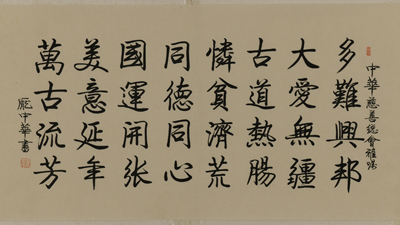 中華慈善總會雅嘱
多難興邦
大愛無疆
古道熱腸
憐貧濟荒
同德同心
國運開张
美意延年
萬古流芳
龐中華書